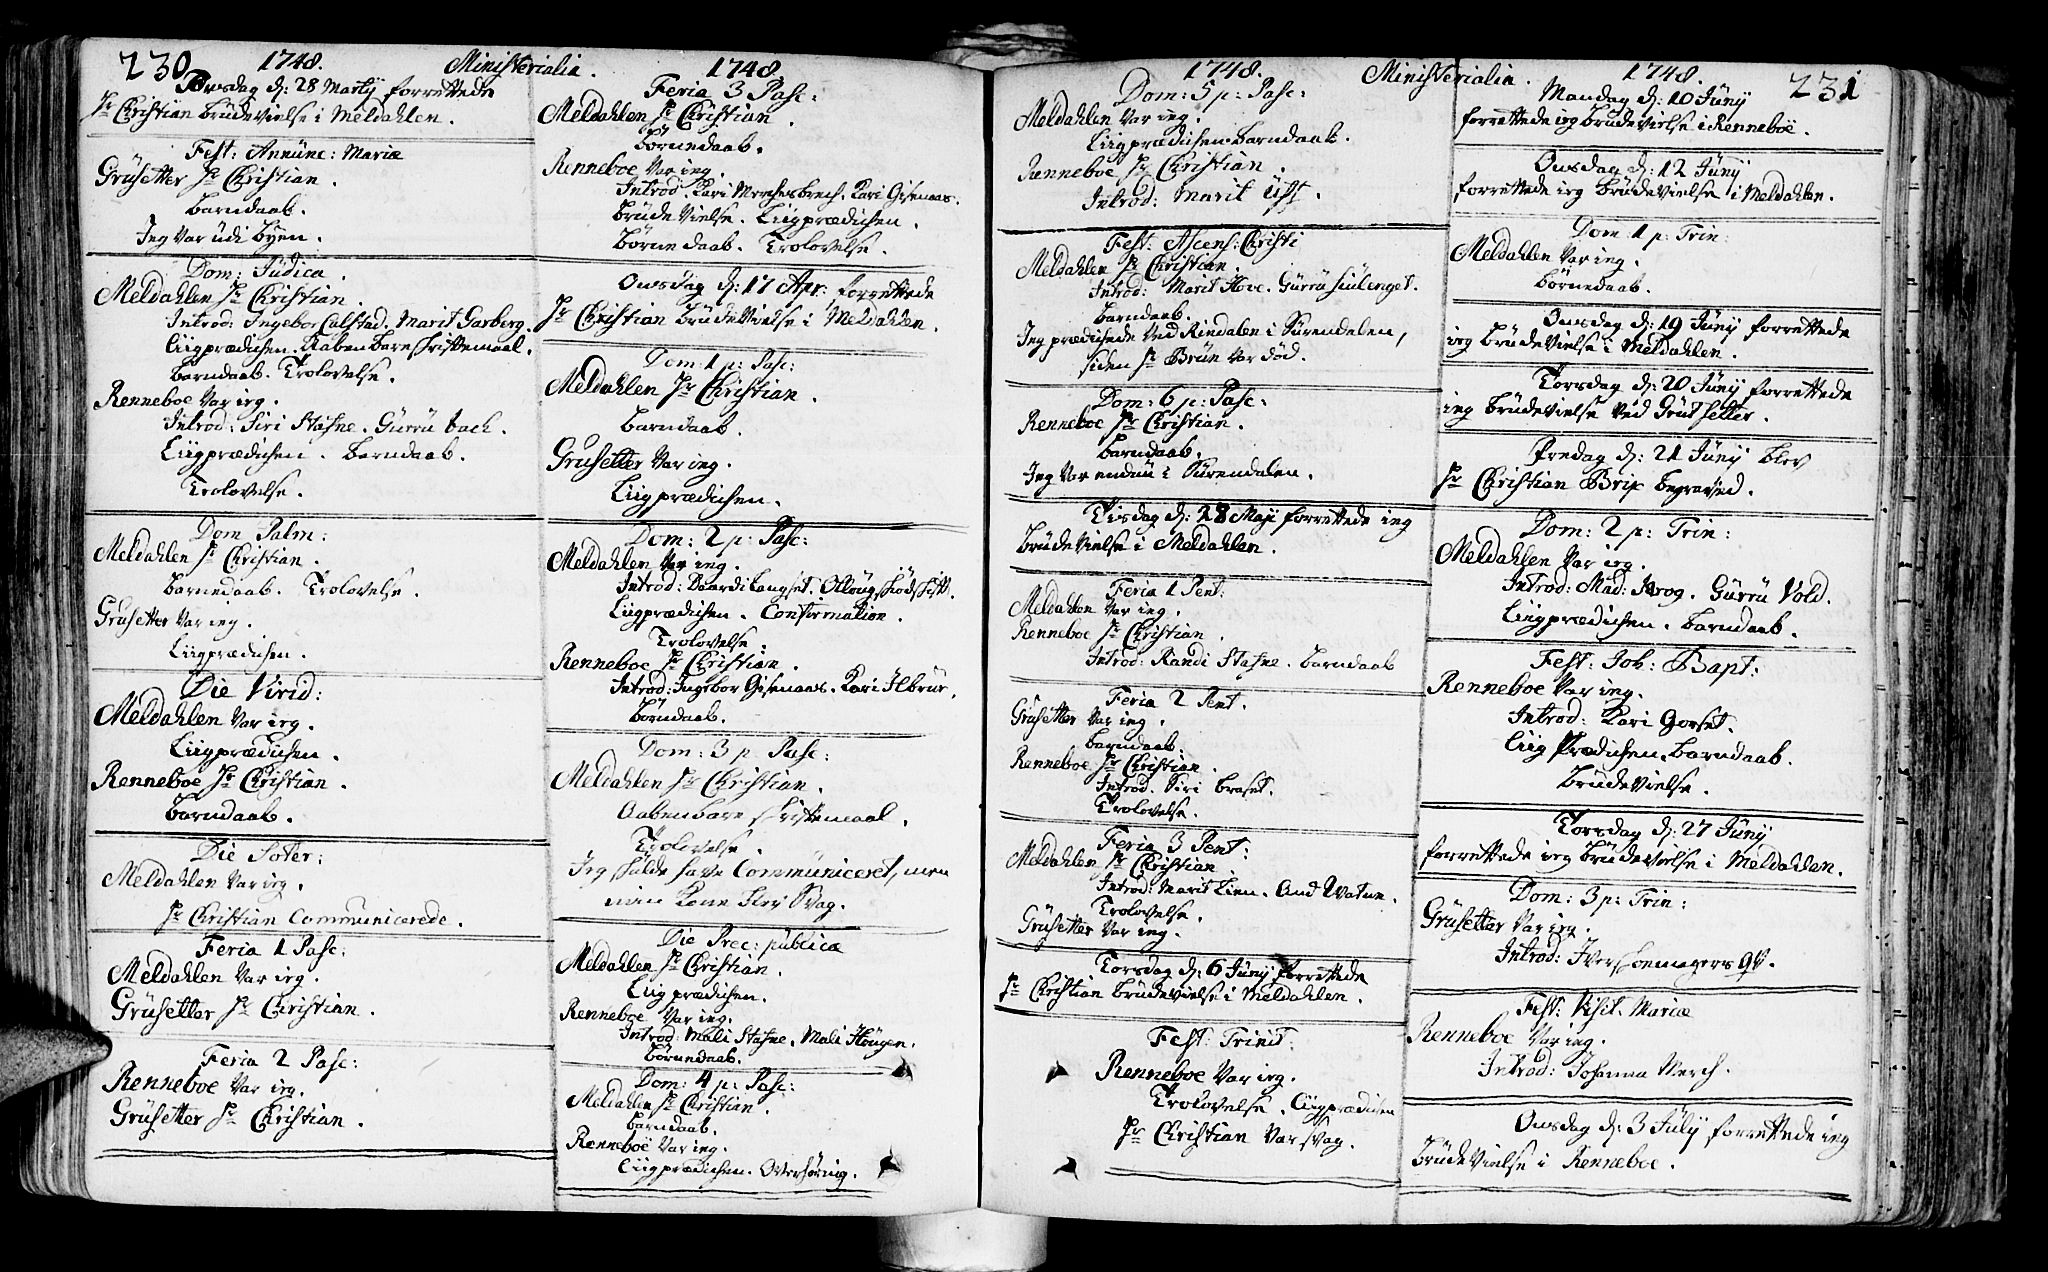 230 1748. Ministerialia. 1748.
Torsdag d: 28 Martij forrettede
Hr Christian brüdevielse i Meldahlen.
Fest: Annunc: Mariæ
Grüsetter Hr Christian.
barndaab.
Jeg var üdi byen.
Dom: Judica.
Meldahlen Hr Christian.
Introd: Ingebor Calstad. Marit Garberg.
Liigprædichen. Aabenbare skriftemaal.
barndaab. Trolovelse.
Renneboe var ieg.
Introd: Siri Stafne. Gurru bach.
Liigprædichen. barndaab.
Trolovelse.
Dom Palm:
Meldahlen Hr Christian.
barnedaab. Trolovelse.
Grüsetter var ieg.
Liigprædichen.
Die Virid:
Meldahlen var ieg.
Liigprædichen.
Renneboe Hr Christian.
barndaab.
Die Soter:
Meldahlen var ieg.
Hr Christian communicerede.
Feria 1 Pasc:
Meldahlen var ieg.
Grüsetter Hr Christian.
Feria 2 Pasc:
Renneboe var ieg.
Grüsetter Hr Christian.
Feria 3 Pasc:
Meldahlen Hr Christian.
börnedaab.
Renneboe var ieg.
Introd: Kari Gisenaas.
brüdevielse. Liigprædichen.
börnedaab. Trolovelse.
Onsdag d: 17 Apr: forrettede
Hr Christian brüdevielse i Meldahlen.
Dom: 1 p: Pasc:
Meldahlen Hr Christian.
barndaab.
Grüsetter var ieg.
Liigprædichen.
Dom: 2 p: Pasc:
Meldahlen var ieg.
Introd: Baardi Langset.
Liigprædichen. Confirmation.
Trolovelse.
Renneboe Hr Christian.
Introd: Ingebor Gisenaas. Kari Ilbrur.
börndaab.
Dom: 3 p: Pasc:
Meldahlen Hr Christian.
Aabenbare skriftemaal.
Trolovelse.
Jeg skulde have communiceret, men
min Kone blev svag.
Die Prec: publicæ
Meldahlen Hr Christian.
Liigprædichen.
Renneboe var ieg.
Introd: Mali Stafne. Mali Hougen.
börnedaab.
Dom: 4 p: Pasc:
Meldahlen Hr Christian.
barndaab.
Renneboe var ieg.
Liigprædichen. Overhöring.
1748. Ministerialia. 1748. 231
Dom: 5 p: Pasc:
Meldahlen var ieg.
Liigprædichen. barndaab.
Renneboe Hr Christian.
Introd: Marit Uft.
Fest: Ascens: Christi
Meldahlen Hr Christian.
Introd: Marit Hove. Gurru
barndaab.
Jeg prædichede ved Rindalen i Surendalen,
siden Hr Brun var död.
Dom: 6 p: Pasc:
Renneboe Hr Christian.
barndaab.
Jeg var endnu i Surendalen.
Tisdag d: 28 Maji forrettede ieg
brüdevielse i Meldahlen.
Feria 1 Pent:
Meldahlen var ieg.
Renneboe Hr Christian.
Introd: Randi Stafne. barndaab
Feria 2 Pent.
Grüsetter var ieg.
barndaab.
Renneboe Hr Christian.
Introd. Siri braset.
Trolovelse.
Feria 3 Pent:
Meldahlen Hr Christian
Introd: Marit Lien.
Trolovelse.
Grüsetter var ieg.
Torsdag d: 6 Juny forrettede
Hr Christian brüdevielse i Meldahlen.
Fest: Trinit:
Renneboe var ieg.
Trolovelse. Liigprædichen
Hr Christian var svag.
Mandag d: 10 Juny
forrettede ieg brüdevielse i Renneboe.
Onsdag d: 12 Juny
forrettede ieg brüdevielse i Meldahlen.
Dom 1 p: Trin:
Meldahlen var ieg.
börnedaab.
Onsdag d: 19 Juny forrettede
ieg brüdevielse i Meldahlen.
Torsdag d: 20 Juny forrettede
ieg brüdevielse ved Grütsetter.
Fredag d: 21 Juny blev
Hr Christian Brix begraved.
Dom: 2 p: Trin:
Meldahlen var ieg.
Introd: Mad: Krog. Gurru Vold.
Liigprædichen. barndaab.
Fest: Joh: Bapt:
Renneboe var ieg.
Introd: Kari Gorset.
Liig Prædichen. barndaab.
brüdevielse.
Torsdag d: 27 Juny
forrettede ieg brüdevielse i Meldahlen.
Dom: 3 p: Trin:
Grüsetter var ieg.
Introd: Iver
Fest: Visit. Mariæ
Renneboe var ieg.
Introd: Johanna Merch.
Onsdag d: 3 July forrettede ieg
brüdevielse i Renneboe.